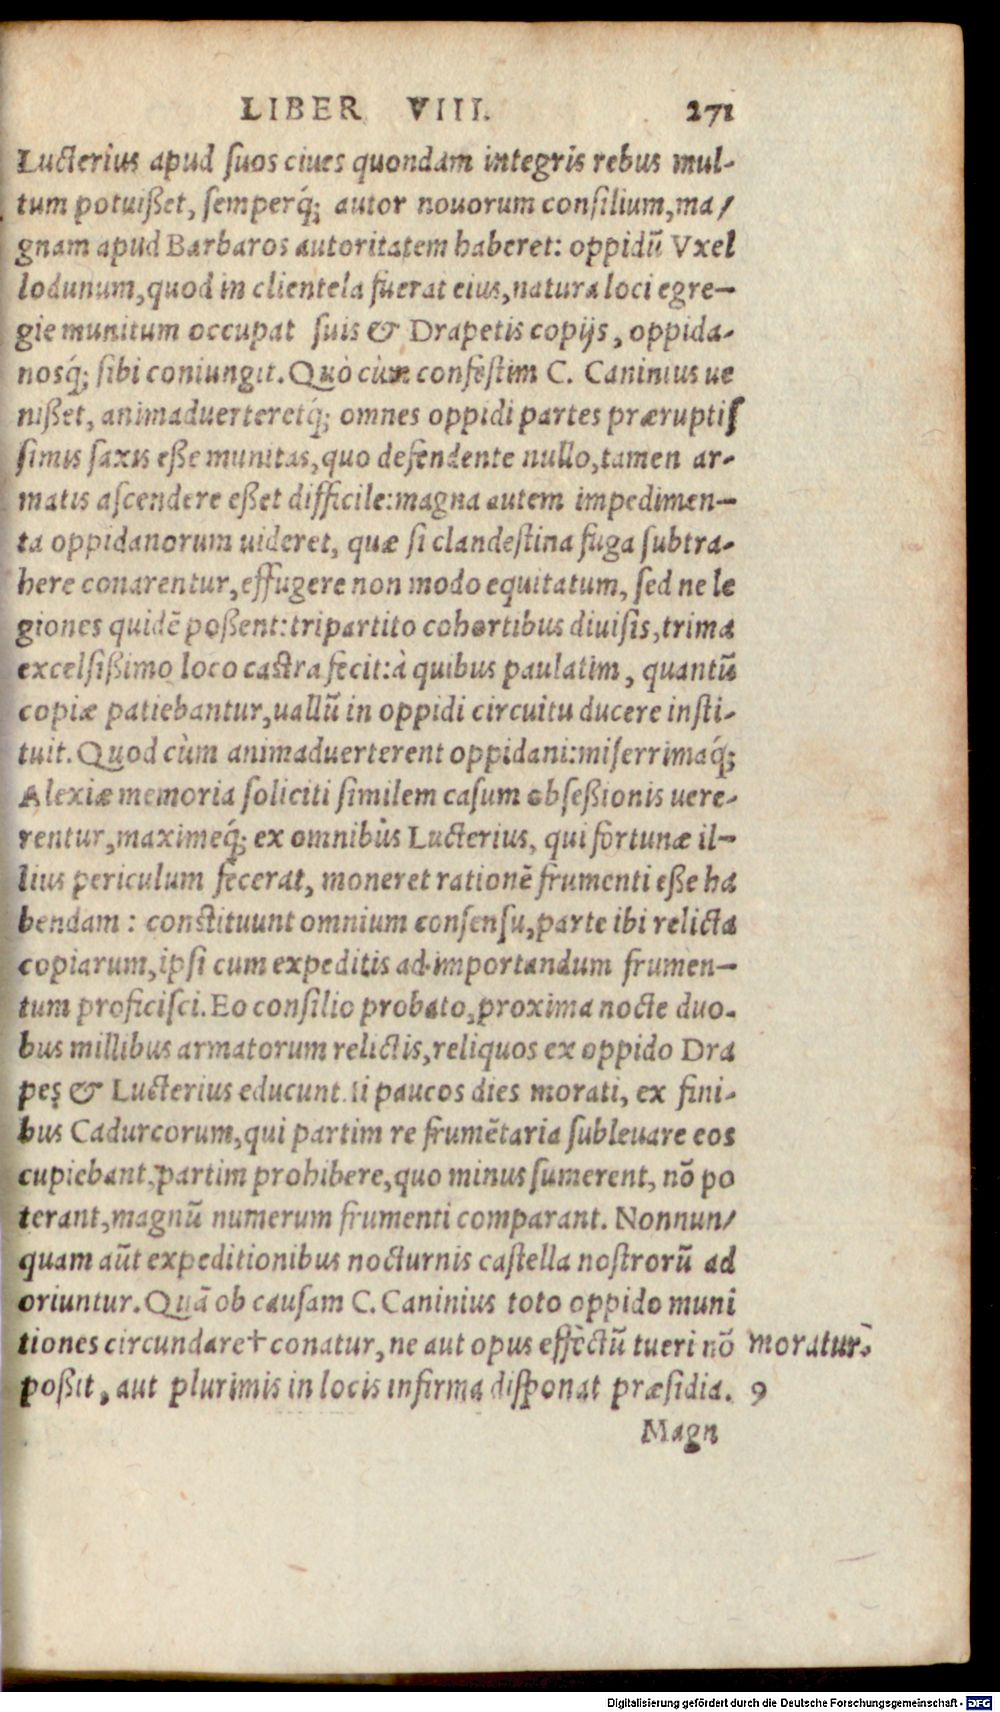 LIBER VIII. 271
Lucterius apud ſuos ciues quondam integris rebus mul-
tum potuißet, ſemperq́; autor nouorum conſilium, ma/
gnam apud Barbaros autoritatem haberet: oppidū Vxel
lodunum, quod in clientela fuerat eius, natura loci egre-
gie munitum occupat ſuis & Drapetis copijs, oppida-
nosq́; ſibi coniungit. Quò cùm confeſtim C. Caninius ue
nißet, animaduerteretq́; omnes oppidi partes præruptiſ
ſimis ſaxis eße munitas, quo defendente nullo, tamen ar-
matis aſcendere eßet difficile: magna autem impedimen-
ta oppidanorum uideret, quæ ſi clandeſtina fuga ſubtra-
here conarentur, effugere non modo equitatum, ſed ne le
giones quidē poßent: tripartito cohortibus diuiſis, trima
excelſißimo loco caſtra fecit: à quibus paulatim, quantū
copiæ patiebantur, uallū in oppidi circuitu ducere inſti-
tuit. Quod cùm animaduerterent oppidani: miſerrimaq́;
Alexiæ memoria ſoliciti ſimilem caſum obſeßionis uere-
rentur, maximeq́; ex omnibus Lucterius, qui fortunæ il-
lius periculum fecerat, moneret rationē frumenti eße ha
bendam : conſtituunt omnium conſenſu, parte ibi relicta
copiarum, ipſi cum expeditis ad importandum frumen-
tum proficiſci. Eo conſilio probato, proxima nocte duo-
bus millibus armatorum relictis, reliquos ex oppido Dra
pes & Lucterius educunt. Ii paucos dies morati, ex fini-
bus Cadurcorum, qui partim re frumētaria ſubleuare eos
cupiebant, partim prohibere, quo minus ſumerent, nō po
terant, magnū numerum frumenti comparant. Nonnun/
quam aūt expeditionibus nocturnis caſtella noſtrorū ad
oriuntur. Quā ob cauſam C. Caninius toto oppido muni
tiones circundare✝ conatur, ne aut opus effectū tueri nō moratur.
poßit, aut plurimis in locis infirma diſponat præſidia. 9
Magn
Digitalisierung gefördert durch die Deutsche Forschungsgemeinschaft - DFG